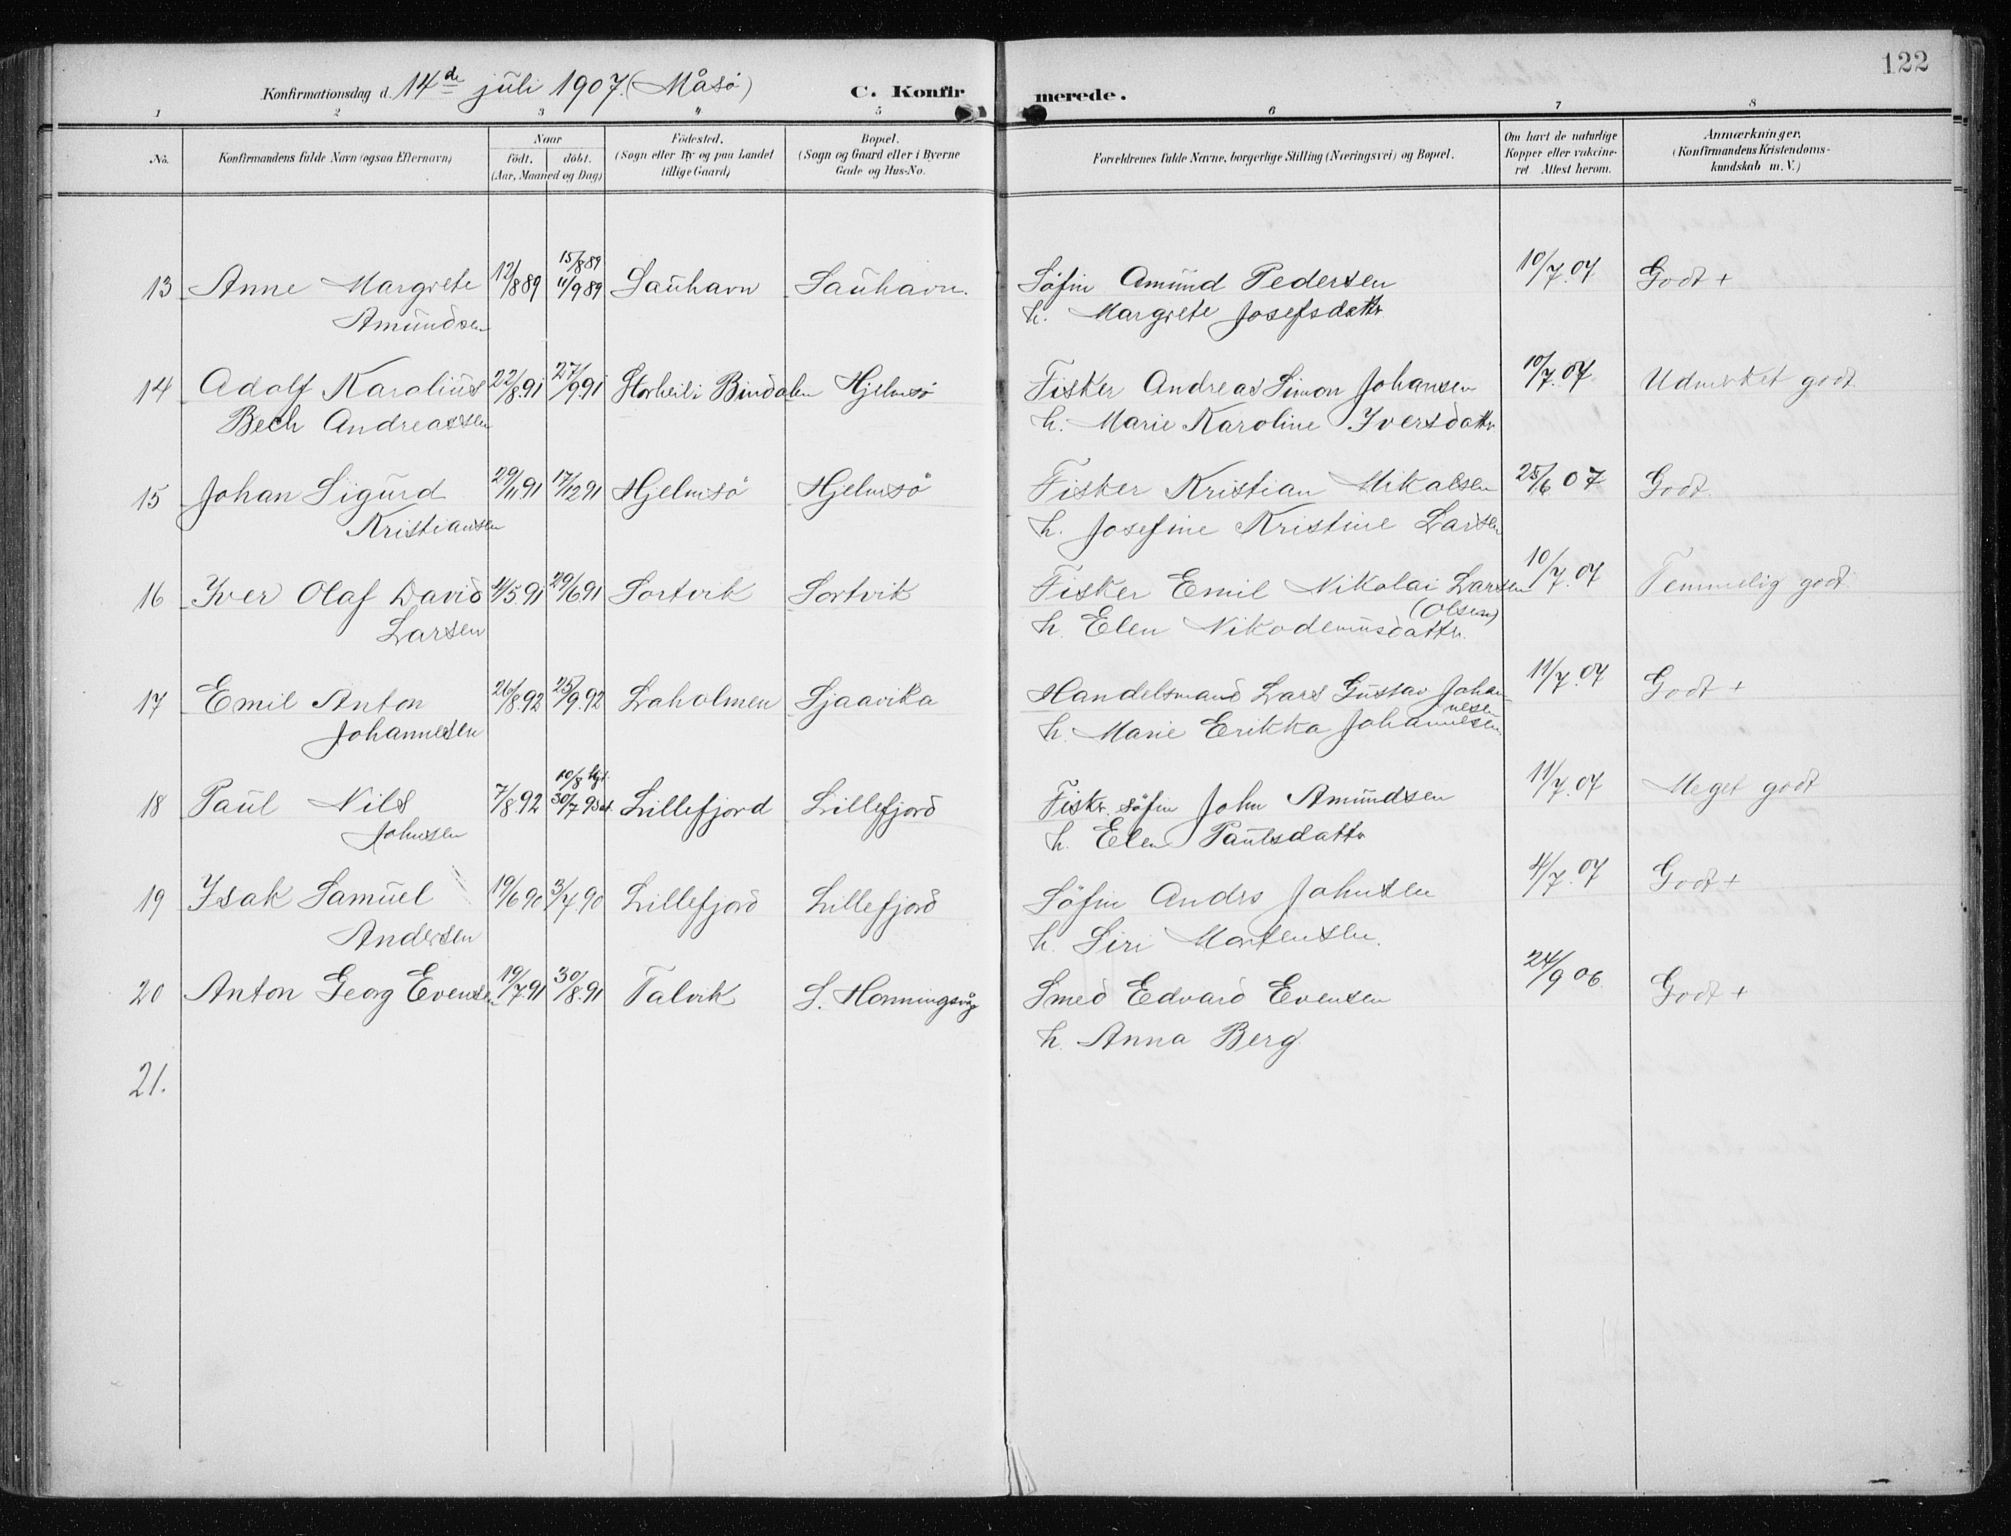 122
Konfirmationsdag d. 14de juli 1907. (Måsø) C. Konfirmerede.
1 2 3 4 5 6 7 8
No. Konfirmandens fulde Navn (ogsaa Efternavn) Naar födt. döbt. (Aar, Maaned og Dag) Födested. (Sogn eller By og paa Landet tillige Gaard) Bopæl. (Sogn og Gaard eller i Byerne Gade og Hus-No. Forældrenes fulde Navne, borgerlige Stilling (Næringsvei) og Bopæl. Om havt de naturlige Kopper eller vaccineret Attest herom. Anmærkninger. (Konfirmandens Kristendomskundskab m. V.)
13 Anne Margrete 12/8 89 15/8 89 11/9 89 Sauhavn Sauhavn. Søfin Amund Pedersen 10/7.07 Godt +
Amundsen h. Margrete Josefsdattr
14 Adolf Karolius 22/8.91 27/9.91 Bindalen Hjelmsø Fisker Andreas Simon Johansen 10/7.07 Udmerket godt
Bech Andreassen h. Marie Karoline Iversdattr
15 Johan Sigurd 29/11 91 17/12 91 Hjelmsø Hjelmsø Fisker Kristian Mikalsen 25/6 07 Godt.
Kristiansen h. Josefine Kristine Larsen
16 Iver Olaf David 4/5.91 29/6 91 Sortvik Sortvik Fisker Emil Nikolai Larsen 10/7.07 Temmelig godt.
Larsen (Olsen)
h. Elen Nikodemusdattr.
17 Emil Anton 26/8.92 25/9.92 Laholmen Sjaavika Handelsmand Lars Gustav Johannesen 11/7.07 Godt +
Johannesen h. Marie Erikka Johannesen
18 Paul Nils 7/8 92 10/8 hjd. 30/7.93 st. Lillefjord Lillefjord Fiskr. søfin John Amundsen 11/7.07 Meget godt
Johnsen h. Elen Paulsdattr
19 Isak Samuel 19/6 90 3/7.90 Lillefjord Lillefjord Søfin Andrs Johnsen 4/7.07 Godt +
Andersen h. Siri Mortensen.
20 Anton Georg Evensen 19/7.91 30/8.91 Talvik S. Honningsvåg Smed Edvard Evensen 24/9 06. Godt +
h. Anna Berg
21.